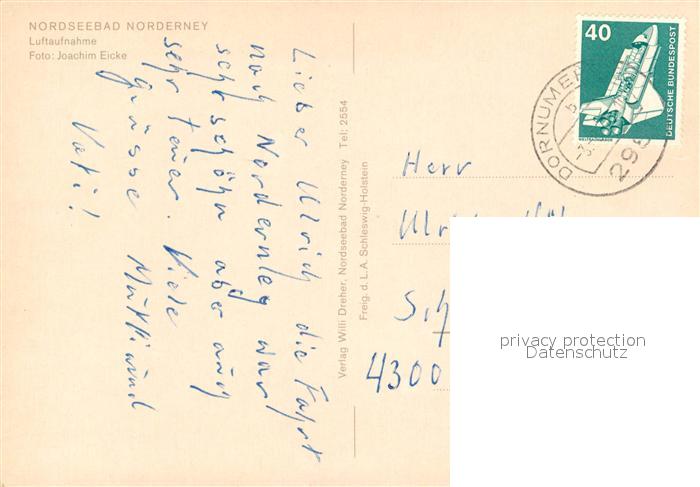 NORDSEEBAD NORDERNEY
Luftaufnahme
Foto: Joachim Eicke
Lieber Ulrich die Fahrt
nach Norderney war
sehr schön aber auch
sehr teuer. Viele
Grüsse Mutti und
Vati!
Verlag Willi Dreher, Nordseebad Norderney Tel: 2554
Freig. d. L.A. Schleswig-Holstein
40
DEUTSCHE BUNDESPOST
WELTRAUMLABOR
DORNUMER
298
Herr
4300
privacy protection
Datenschutz